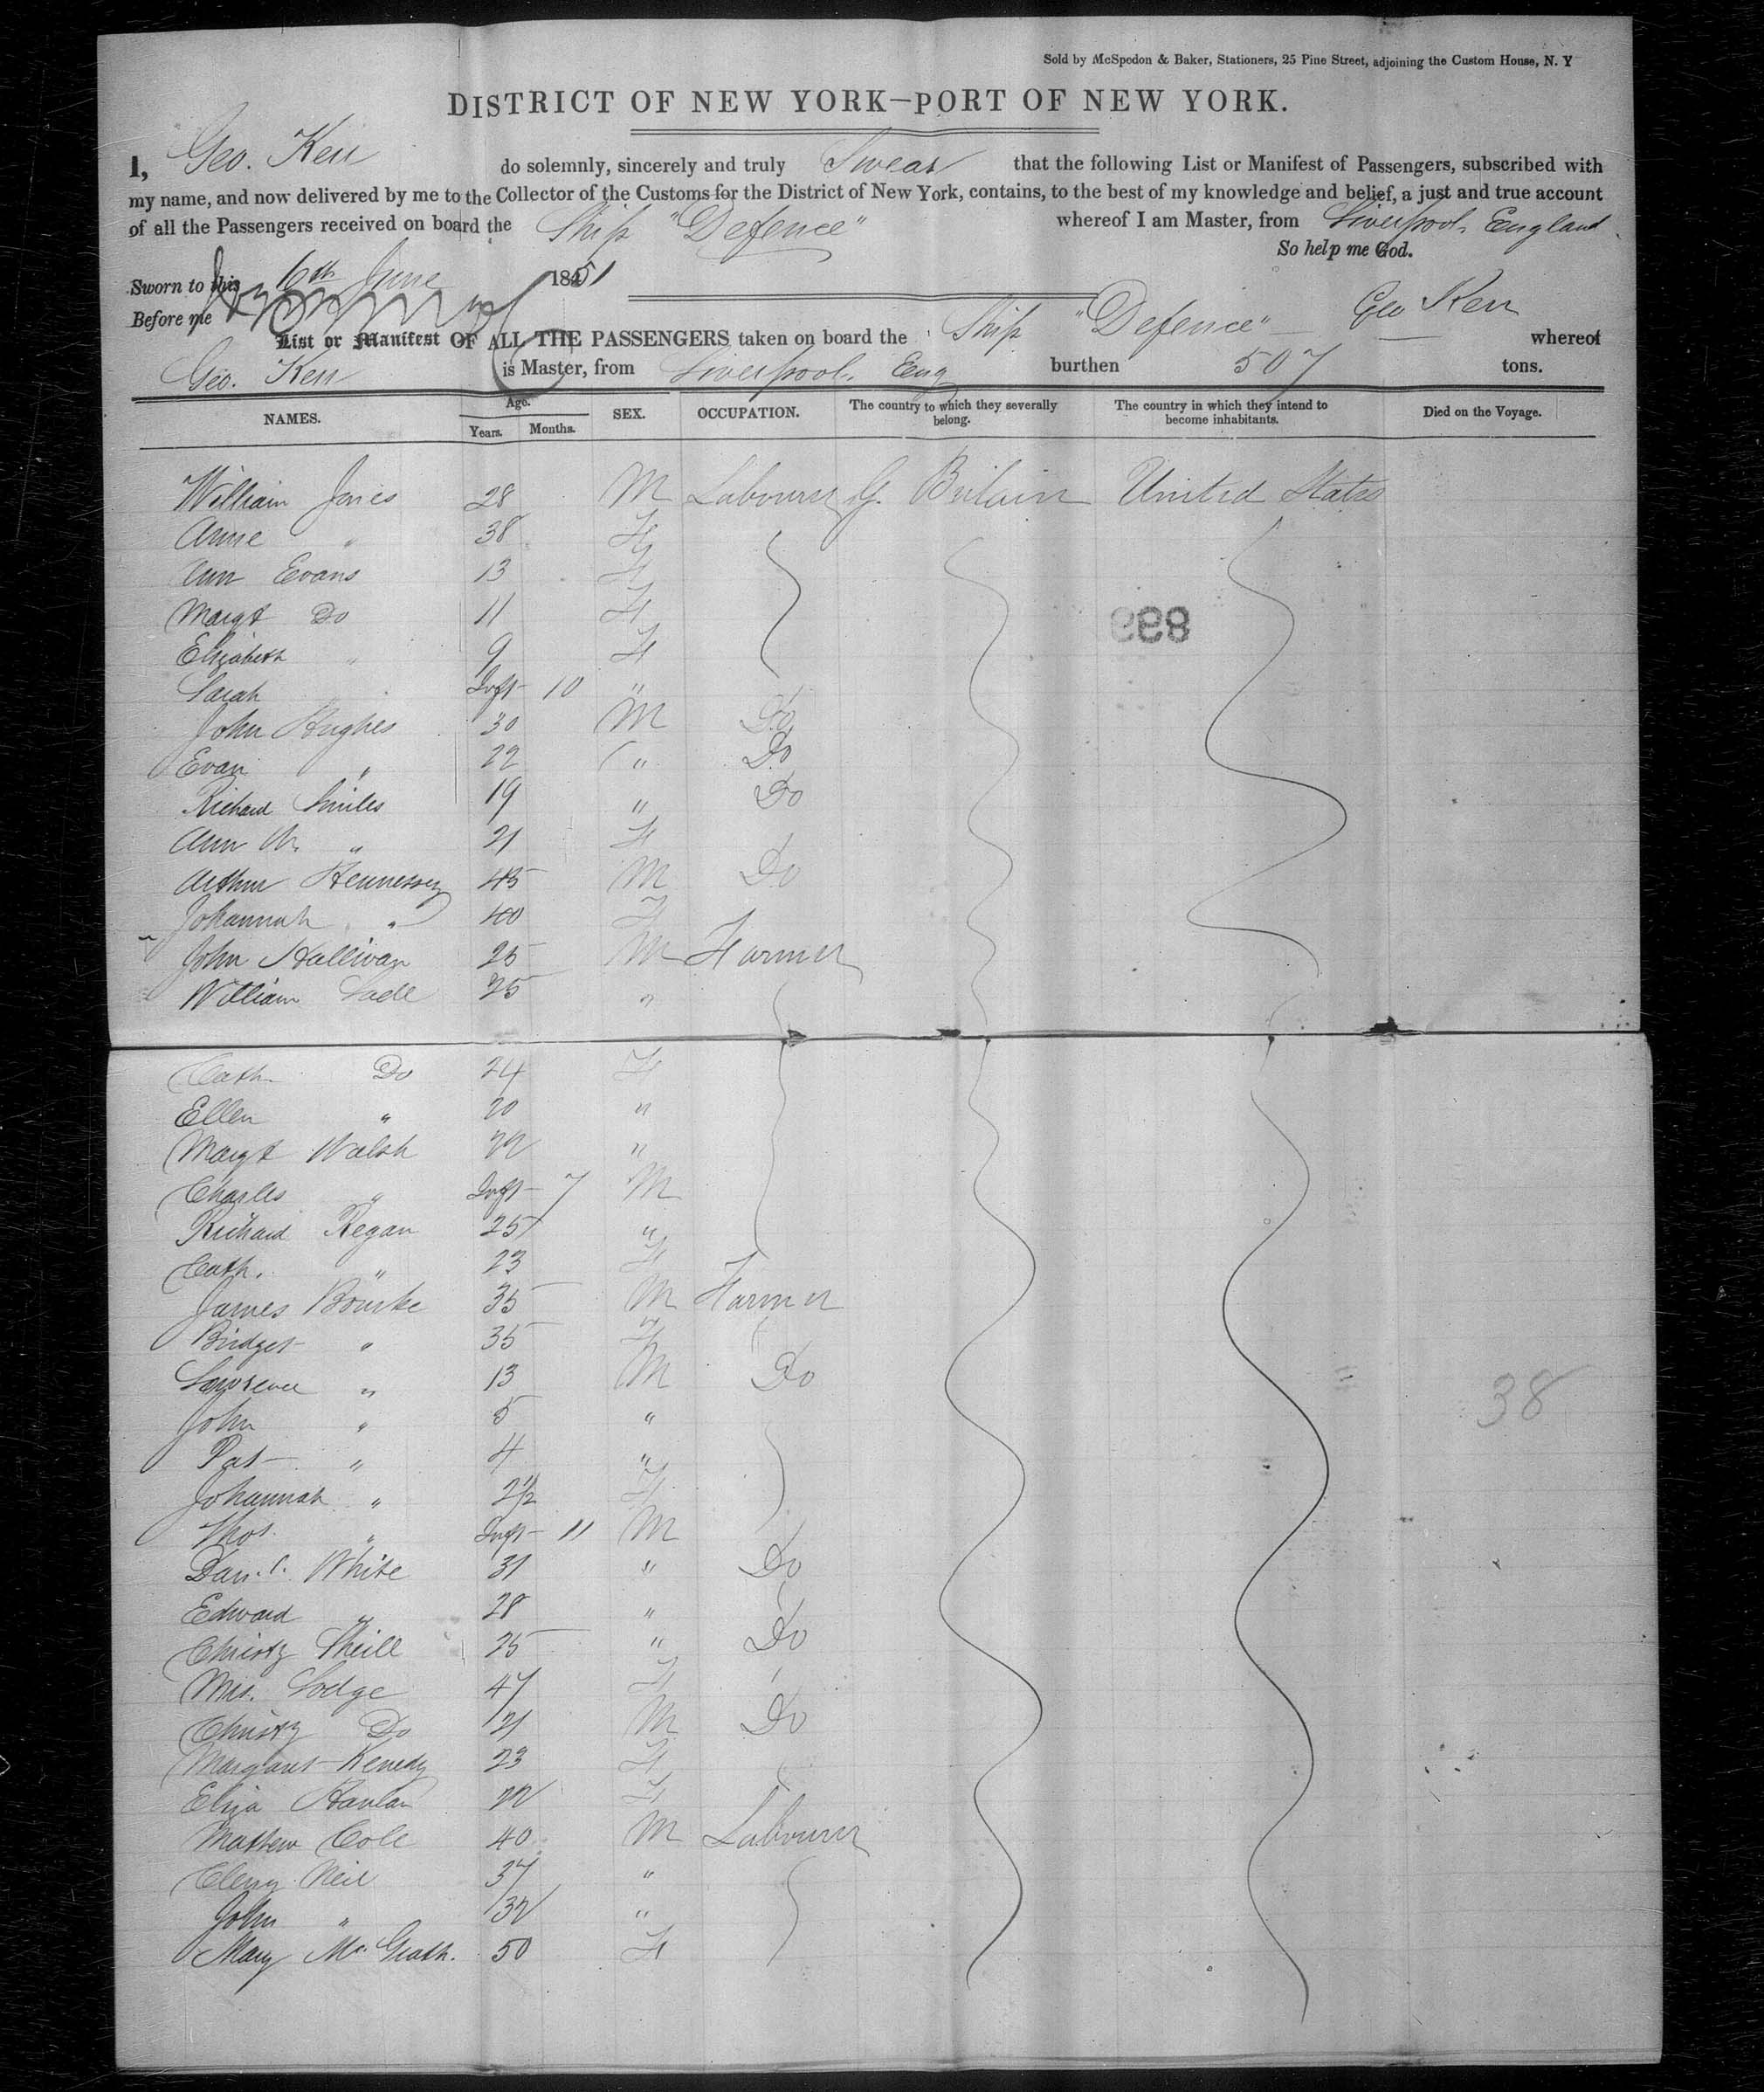 Sold by McSpedon & Baker, Stationers, 25 Pine Street, adjoining the Custom House, N. Y
DISTRICT OF NEW YORK—PORT OF NEW YORK.
I, Geo. Kerr do solemnly, sincerely and truly Swear that the following List or Manifest of Passengers, subscribed with
my name, and now delivered by me to the Collector of the Customs for the District of New York, contains, to the best of my knowledge and belief, a just and true account
of all the Passengers received on board the Ship "Defence" whereof I am Master, from Liverpool, England
So help me God.
Sworn to this 6th June 1851
Before me
Geo Kerr
List or Manifest OF ALL THE PASSENGERS taken on board the Ship "Defence" whereof
Geo. Kerr is Master, from Liverpool, Eng burthen 507 tons.
NAMES. Age. Years. Months. SEX. OCCUPATION. The country to which they severally belong. The country in which they intend to become inhabitants. Died on the Voyage.
William Jones 28 M Labourer G. Britain United States
Anne " 38 F
Ann Evans 13 F
Margt Do 11 F
Elizabeth " 9 F
Sarah Inft 10 "
John Hughes 30 M Do
Evan " 22 " Do
Richard Smiles 19 " Do
Ann M. " 21 F
Arthur Hennessey 45 M Do
Johannah " 40 F
John Hallivan 25 M Farmer
William 25 "
Cath. Do 24 F
Ellen " 20 "
Margt Walsh 22 "
Charles " Inft 7 M
Richard Regan 25 "
Cath. " 23 F
James Bourke 35 M Farmer
Bridget " 35 F
Lawrence " 13 M Do
John " 5 "
Pat " 4 "
Johannah " 2½ F
Thos. " Inft 11 M
Danl. White 31 " Do
Edward " 28 "
Christy Sheill 25 " Do
Mrs. Lodge 47 F
Christy Do 21 M Do
Margaret Kenedy 23 F
Eliza Hanlan 22 F
Mathew Cole 40 M Labourer
Neil 37 "
John " 32 "
Mary McGrath. 50 F
899
38